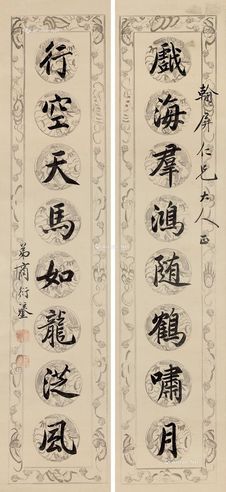 翰屏仁兄大人正
戲海羣鴻随鶴嘯月
行空天馬如龍從風
弟商衍鎏